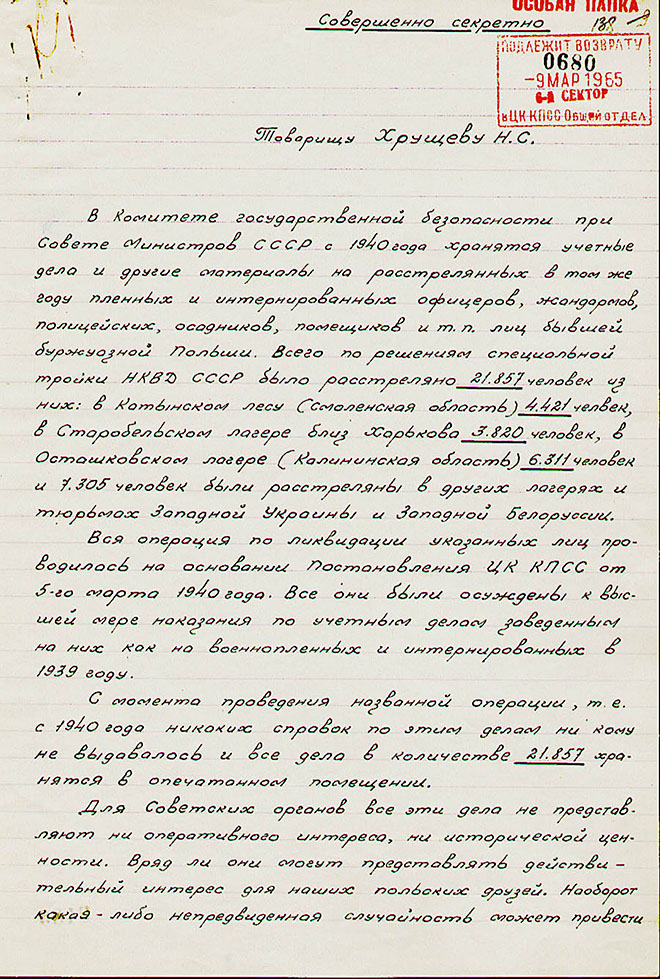 ОСОБАЯ ПАПКА
Совершенно секретно
ПОДЛЕЖИТ ВОЗВРАТУ
0680
-9 МАР 1965
6-й СЕКТОР
в ЦК КПСС Общий отдел
Товарищу Хрущеву Н.С.
В Комитете государственной безопасности при
Совете Министров СССР с 1940 года хранятся учетные
дела и другие материалы на расстрелянных в том же
году пленных и интернированных офицеров, жандармов,
полицейских, осадников, помещиков и т.п. лиц бывшей
буржуазной Польши. Всего по решениям специальной
тройки НКВД СССР было расстреляно 21.857 человек из
них: в Катынском лесу (Смоленская область) 4.421 челвек,
в Старобельском лагере близ Харькова 3.820 человек, в
Осташковском лагере (Калининская область) 6.311 человек
и 7.305 человек были расстреляны в других лагерях и
тюрьмах Западной Украины и Западной Белоруссии.
Вся операция по ликвидации указанных лиц про-
водилась на основании Постановления ЦК КПСС от
5-го марта 1940 года. Все они были осуждены к выс-
шей мере наказания по учетным делам заведенным
на них как на военнопленных и интернированных в
1939 году.
С момента проведения названной операции, т.е.
с 1940 года никаких справок по этим делам ни кому
не выдавалось и все дела в количестве 21.857 хра-
нятся в опечатанном помещении.
Для Советских органов все эти дела не представ-
ляют ни оперативного интереса, ни исторической цен-
ности. Вряд ли они могут представлять действи-
тельный интерес для наших польских друзей. Наоборот
какая-либо непредвиденная случайность может привести